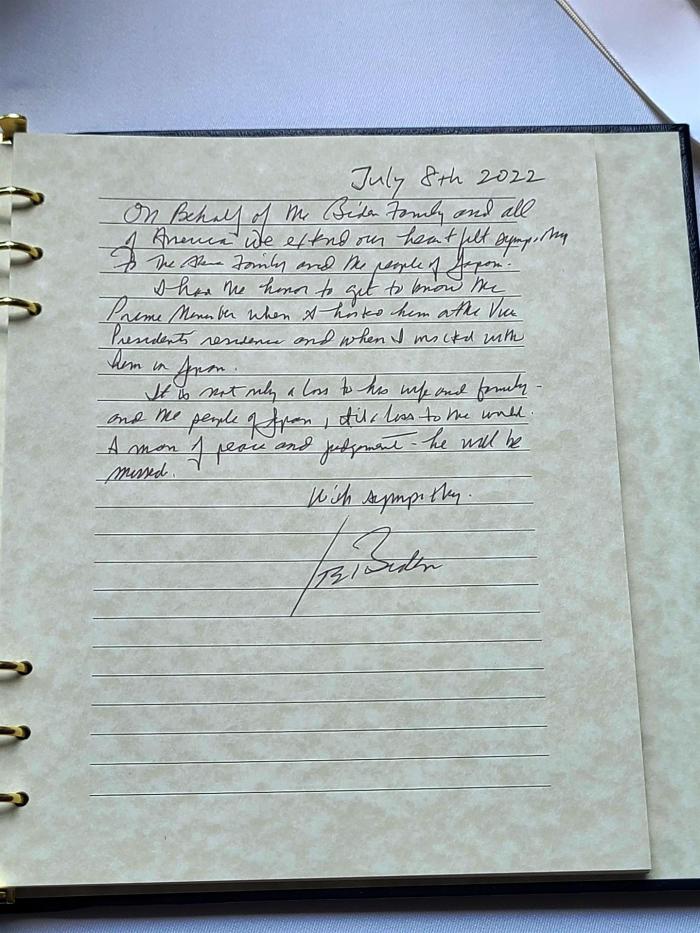 July 8th 2022
On Behalf of the Biden Family and all
of America we extend our heartfelt sympathy
To the Abe Family and the people of Japan.
I had the honor to get to know the
Prime Minister when I hosted him at the Vice
Presidents residence and when I visited with
him in Japan.
It is not only a loss to his wife and family -
and the people of Japan, it's a loss to the world.
A man of peace and judgement - he will be
missed.
With sympathy.
Biden